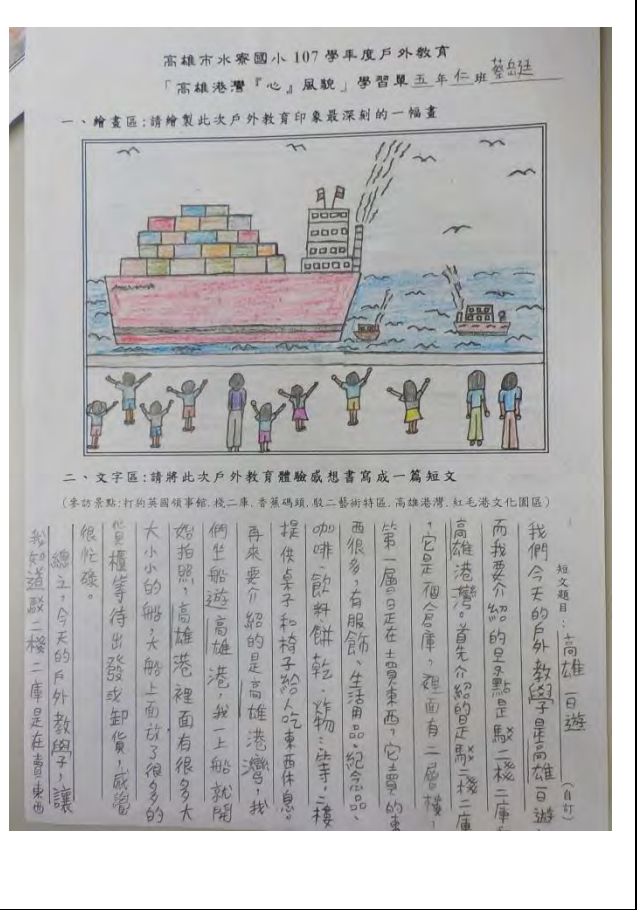 高雄市水寮國小 107 學年度戶外教育
「高雄港灣『心』風貌」學習單 五 年 仁 班 蔡岳廷
一、繪畫區:請繪製此次戶外教育印象最深刻的一幅畫
二、文字區:請將此次戶外教育體驗感想書寫成一篇短文
(參訪景點:打狗英國領事館.棧二庫.香蕉碼頭.駁二藝術特區.高雄港灣.紅毛港文化園區)
短文題目:高雄一日遊 (自訂)
我們今天的戶外教學是高雄一日遊,
而我要介紹的景點是駁二棧二庫
高雄港灣。首先介紹的是駁二棧二庫
,它是一個倉庫,裡面有二層樓,
第一層是在賣東西,它賣的東
西很多,有服飾、生活用品、紀念品、
咖啡、飲料、餅乾、炸物…等,二樓
提供桌子和椅子給人吃東西休息。
再來要介紹的是高雄港灣,我
們坐船遊高雄港,我一上船就開
始拍照,高雄港裡面有很多大
大小小的船,大船上面放了很多的
貨櫃等待出發或卸貨,感覺
很忙碌。
總之,今天的戶外教學,讓
我知道駁二棧二庫是在賣東西